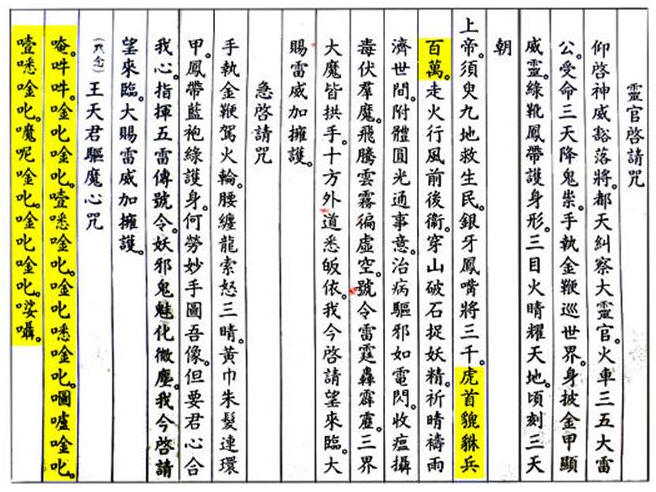 靈官啓請咒
仰啓神威豁落將。都天糾察大靈官。火車三五大雷
公。受命三天降鬼祟。手執金鞭巡世界。身披金甲顯
威靈。綠靴鳳帶護身形。三目火晴耀天地。頃刻三天
朝
上帝。須臾九地救生民。銀牙鳳嘴將三千。虎首貔貅兵
百萬。走火行風前後衛。穿山破石捉妖精。祈晴禱雨
濟世間。附體圓光通事意。治病驅邪如電閃。收瘟攝
毒伏羣魔。飛騰雲霧徧虛空。號令雷霆轟霹靂。三界
大魔皆拱手。十方外道悉皈依。我今啓請望來臨。大
賜雷威加擁護。
急啓請咒
手執金鞭駕火輪。腰纏龍索怒三晴。黃巾朱髮連環
甲。鳳帶藍袍綠護身。何勞妙手圖吾像。但要君心合
我心。指揮五雷傳號令。妖邪鬼魅化微塵。我今啓請
望來臨。大賜雷威加擁護。
王天君驅魔心咒
唵。吽吽。唫叱唫叱。噎悉唫叱。唫叱悉唫叱。嘓嚧唫叱。
噎悉唫叱。魔呢唫叱。唫叱唫叱。娑囁。